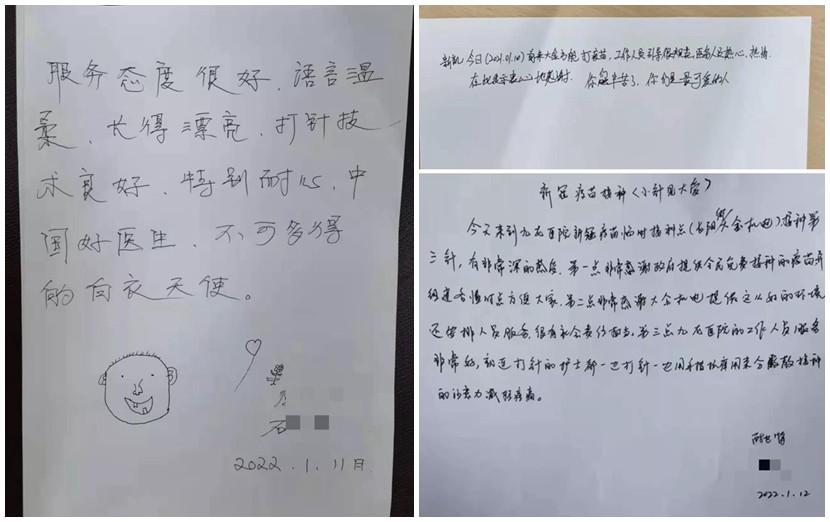 服务态度很好、语言温
柔、长得漂亮、打针技
术良好、特别耐心、中
国好医生、不可多得
的白衣天使。
石
2022.1.11日
今日(2021.01.10)前来大金打疫苗,工作人员引导很规范,医务人员热心,热情
在此表示衷心地感谢! 你们辛苦了,你们是最可爱的人
新冠疫苗接种(小针见大爱)
今天来到九龙医院新冠疫苗临时接种点(长阳街大金机电)接种第
三针,有非常深的感受。第一点非常感谢政府提供全民免费接种的疫苗并
组建各临时点方便大家。第二点非常感谢大金机电提供这么好的环境
还安排人员服务,很有社会责任担当。第三点九龙医院的工作人员服务
非常好,就连打针的护士都一边打针一边用手指按摩周来分散接种
的注意力减轻疼痛。
2022.1.12